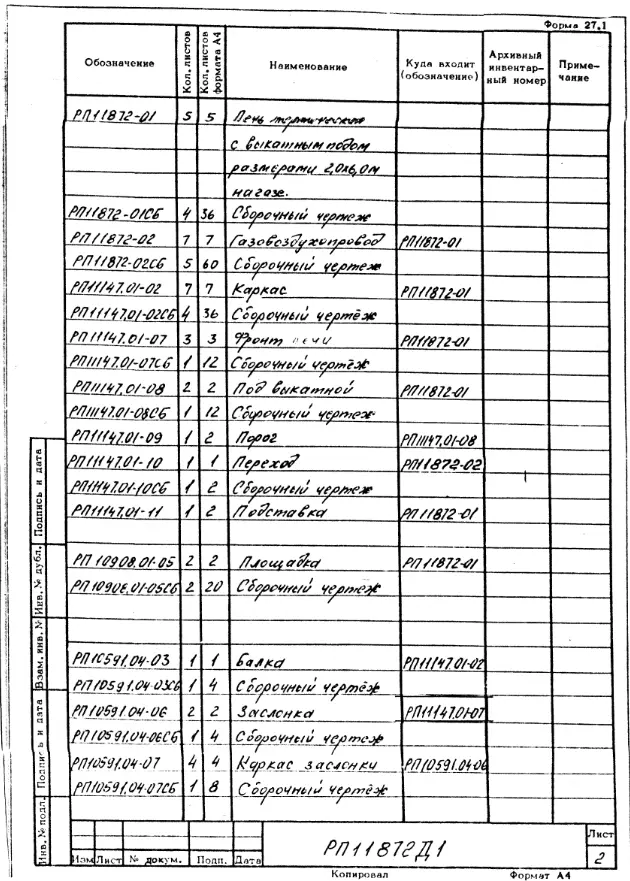 Форма 27.1
Обозначение Кол. листов Кол. листов формата А4 Наименование Куда входит (обозначение) Архивный инвентарный номер Примечание
РП11872-01 5 5 Печь термическая
с выкатным подом
размерами 2,0х6,0м
на газе.
РП11872-01СБ 4 36 Сборочный чертеж
РП11872-02 7 7 Газовоздухопровод РП11872-01
РП11872-02СБ 5 60 Сборочный чертеж
РП11147.01-02 7 7 Каркас РП11872-01
РП11147.01-02СБ 4 36 Сборочный чертёж
РП11147.01-07 3 3 Фронт печи РП11872-01
РП11147.01-07СБ 1 12 Сборочный чертёж
РП11147.01-08 2 2 Под выкатной РП11872-01
РП11147.01-08СБ 1 12 Сборочный чертеж
РП11147.01-09 1 2 Порог РП11147.01-08
РП11147.01-10 1 1 Переход РП11872-02
РП11147.01-10СБ 1 2 Сборочный чертеж
РП11147.01-11 1 2 Подставка РП11872-01
РП10908.01-05 2 2 Площадка РП11872-01
РП10908.01-05СБ 2 20 Сборочный чертёж
РП10591.04-03 1 1 Балка РП11147.01-02
РП10591.04-03СБ 1 4 Сборочный чертёж
РП10591.04-06 2 2 Заслонка РП11147.01-07
РП10591.04-06СБ 1 4 Сборочный чертёж
РП10591.04-07 4 4 Каркас заслонки РП10591.04-06
РП10591.04-07СБ 1 8 Сборочный чертёж
Инв. № подл. Подпись и дата Взам. инв. № Инв. № дубл. Подпись и дата
Изм Лист № докум. Подп. Дата
РП11872Д1
Лист
2
Копировал Формат А4